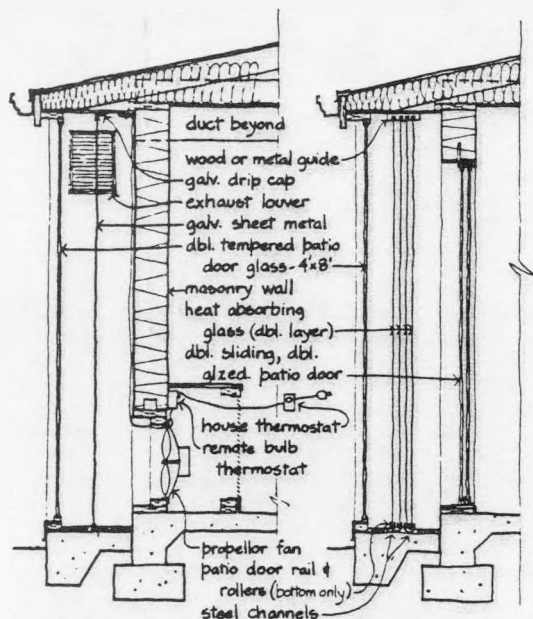 duct beyond
wood or metal guide
galv. drip cap
exhaust louver
galv. sheet metal
dbl. tempered patio
door glass - 4'x8'
masonry wall
heat absorbing
glass (dbl. layer)
dbl. sliding, dbl.
glzed. patio door
house thermostat
remote bulb
thermostat
propellor fan
patio door rail &
rollers (bottom only)
steel channels